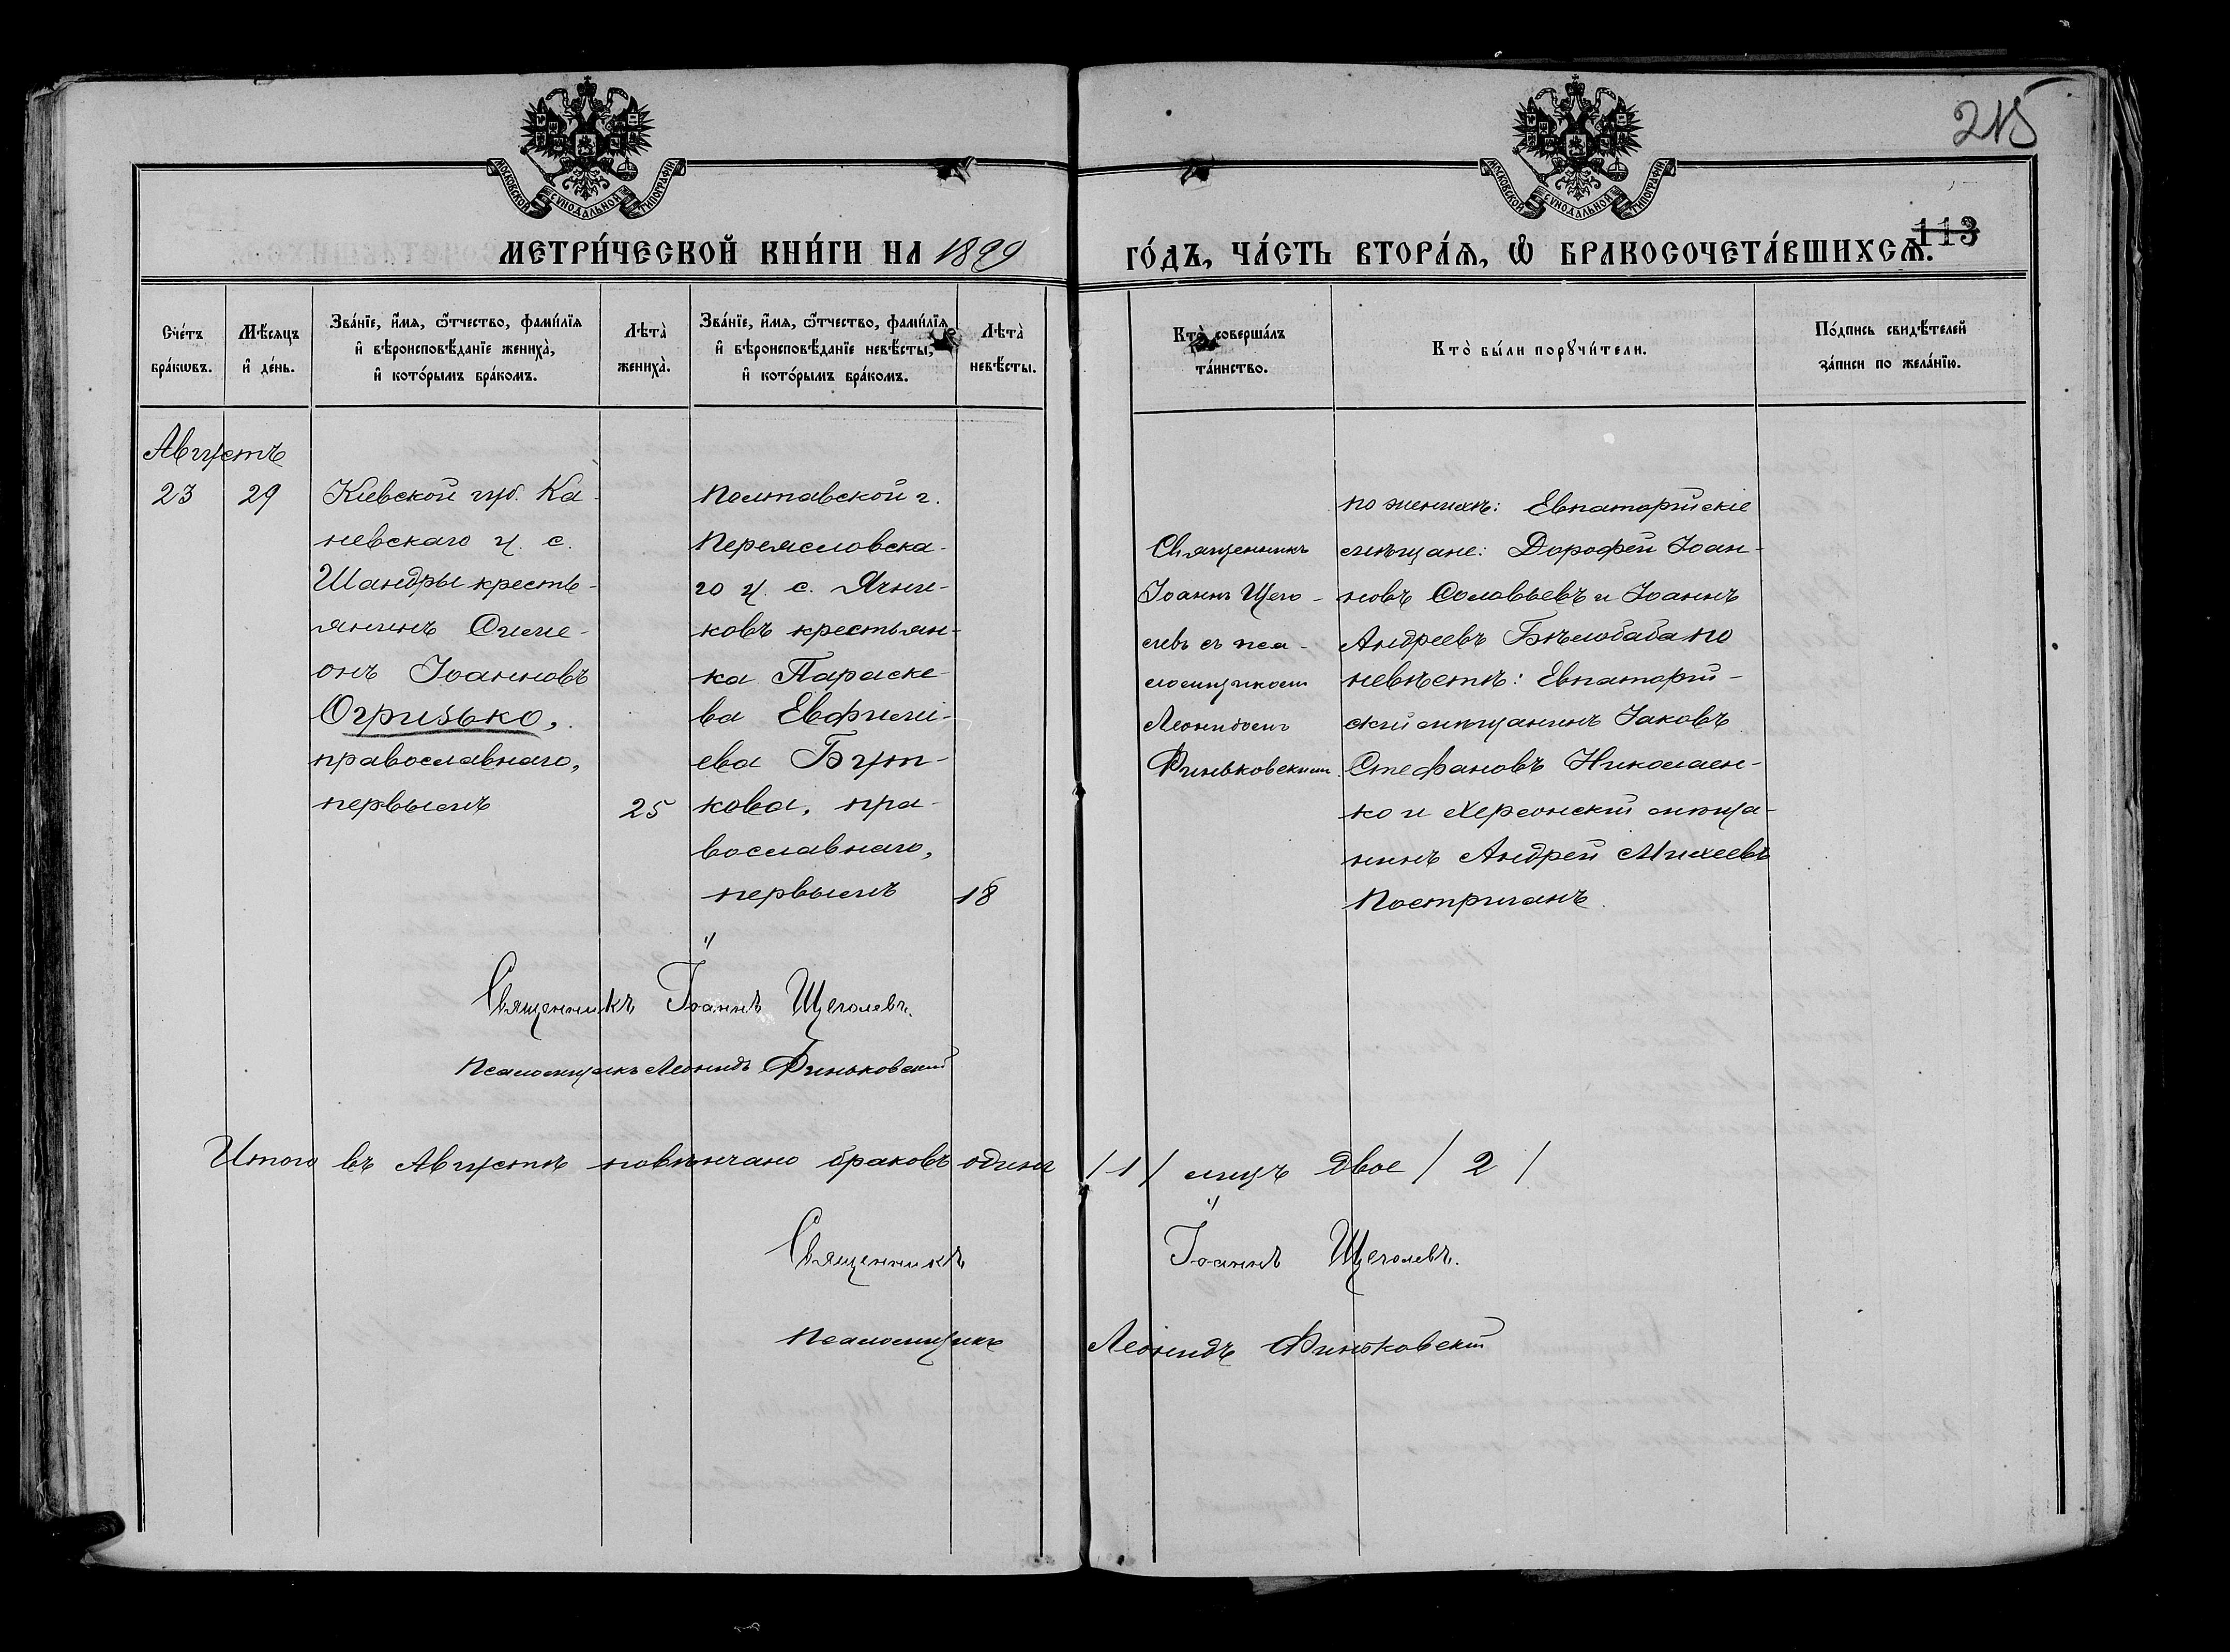 215
МОСКОВСКОЙ СѴНОДАЛЬНОЙ ТИПОГРАФІИ
МОСКОВСКОЙ СѴНОДАЛЬНОЙ ТИПОГРАФІИ
113
МЕТРИ́ЧЕСКОЙ КНИ́ГИ НА 1899 ГО́ДЪ, ЧА́СТЬ ВТОРА́Я, Ѡ҆ БРАКОСОЧЕТА́ВШИХСѦ.
Сче́тъ бра́кωвъ.
Мѣ́сяцъ и҆ де́нь.
Зва́нїе, и҆́мѧ, ѻ҆́тчество, фами́лїѧ и҆ вѣроисповѣ́данїе жениха̀, и҆ кото́рымъ бра́комъ.
Лѣта̀ жениха̀.
Зва́нїе, и҆́мѧ, ѻ҆́тчество, фами́лїѧ и҆ вѣроисповѣ́данїе невѣ́сты, и҆ кото́рымъ бра́комъ.
Лѣта̀ невѣ́сты.
Кто̀ соверша́лъ та́инство.
Кто̀ бы́ли порꙋчи́тели.
По́дпись свидѣ́телей за́писи по жела́нїю.
Августъ
23
29
Кіевской губ. Ка-
невскаго у. с.
Шандры кресть-
янинъ Симе-
онъ Іоанновъ
Огризько,
православнаго,
первымъ
25
Полтавской г.
Переясловска-
го у. с. Ячни-
ковъ крестьян-
ка Параске-
ва Евфимі-
ева Бут-
кова, пра-
вославнаго,
первымъ
18
Священникъ
Іоаннъ Щего-
левъ съ пса-
ломщикомъ
Леонидомъ
Финьковскимъ.
по женихѣ: Евпаторійскіе
мѣщане: Дорофей Іоан-
новъ Соловьевъ и Іоаннъ
Андреевъ Бѣлобаба по
невѣстѣ: Евпаторій-
скій мѣщанинъ Іаковъ
Стефановъ Николаен-
ко и Херсонскій мѣща-
нинъ Андрей Михеевъ
Постриганъ.
Священникъ Іоаннъ Щеголевъ.
Псаломщикъ Леонидъ Финьковскій
Итого въ Августѣ повѣнчано браковъ одинъ /1/ лицъ двое /2/
Священникъ Іоаннъ Щеголевъ.
Псаломщикъ Леонидъ Финьковскій